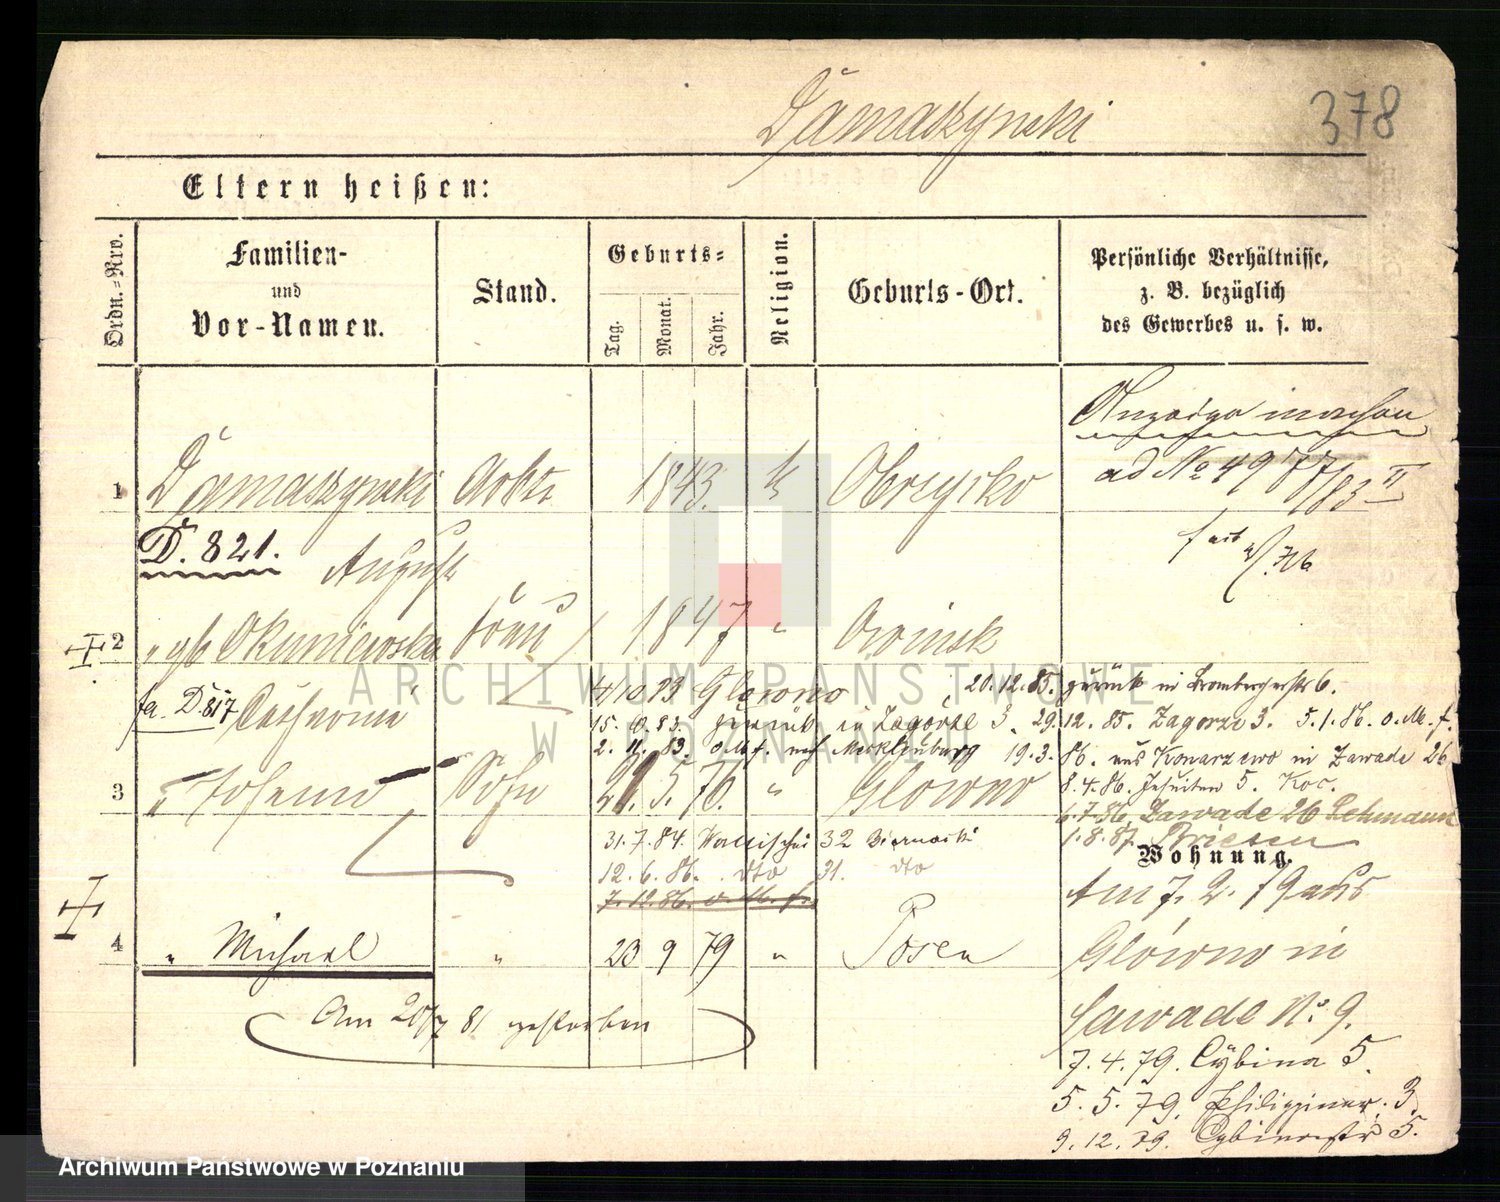 Damaszynski
378
Eltern heißen:
Ordn.-Nro.
Familien-
und
Vor-Namen.
Stand.
Geburts-
Tag.
Monat.
Jahr.
Religion.
Geburts-Ort.
Persönliche Verhältnisse,
z. B. bezüglich
des Gewerbes u. s. w.
Anzeige machen
ad No 4977/83 II
1 Damaszynski Arbtr 1843. k Obrzycko
D. 821.
August
2 " gb Okuniewska Frau 1847 " Owinsk
fa. D. 817 Catharina
4/10 83 Glowno
20.12.85. zurück in Brombergerstr 6.
15.10.83. zurück in Zagórze 3. 29.12.85. Zagorze 3. 5.1.86. o. M. f.
2. 11. 83. o. M. f. nach Mecklenburg 19.3.86. aus Konarzewo in Zawade 26
3 " Sohn 5. 76. " Glowno
8.4.86. Jesuiten 5. Koc.
6.7.86. Zawade 26 Lehmann
31.7.84. Wallischei 32 Biernacki
1.8.87. Briesen
Wohnung.
12.6.86. dto 31. dto
7.12.86. o. M. f.
Am 7. 2. 79 aus
4 " Michael " 23 9 79 " Posen
Glówno in
Am 20/7 81 gestorben
Zawade No 9.
7.4.79. Cybina 5.
5.5.79. Philippiner. 3.
9.12.79. Cybinastr 5.
ARCHIWUM PAŃSTWOWE
W POZNANIU
Archiwum Państwowe w Poznaniu